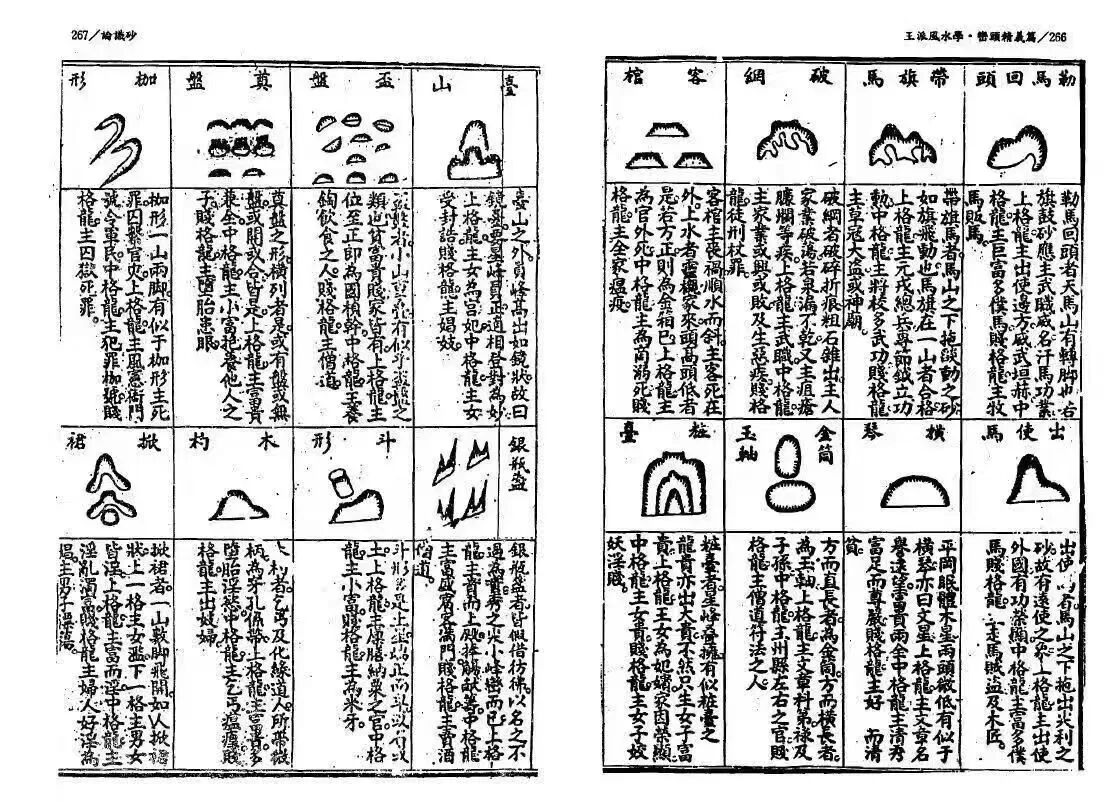 王派風水學・巒頭精義篇／266
勒馬回頭
勒馬回頭者天馬山有轉脚也右
旗鼓砂應主武職威名汗馬功業
上格龍主出使邊方威武烜赫中
格龍主巨富多僕馬賤格龍主牧
馬販馬。
帶旗馬
帶旗馬者馬山之下拖燄動之砂
如旗飛動也馬旗在一山者合格
上格龍主元戎總兵專節鉞立功
動中格龍主將校多武功賤格龍
主草冦大盜或神廟。
破網
破網者破碎折痕粗石錐出主人
家業破蕩若泉漏不乾又主疽瘡
膿爛等疾上格龍主武職中格龍
主家業或興或敗及生惡疾賤格
龍徒刑杖罪。
客棺
客棺主喪禍順水而斜主客死在
外上水者 家來頭高頭低者
是若方正則為金箱巳上格龍主
為官外死中格龍主為商溺死賤
格龍主全家瘟疫
出使馬
出使 者馬山之下拖出火利之
砂故有遠使之象上格龍主出使
外國有功榮顯中格龍主富多僕
馬賤格龍 走馬賊盜及木匠。
橫琴
平岡眠體木星兩頭微低有似于
橫琴亦曰文星上格龍主文章名
譽遠望富貴兩全中格龍主清秀
富足而尊嚴賤格龍主好 而清
貧。
金箱玉軸
方而直長者為金箱方而橫長者
為玉軸上格龍主文章科第祿及
子孫中格龍主州縣左右之官賤
格龍主僧道符法之人
粧臺
粧臺者星峰 擁有似粧臺之
龍貴亦出大貴不然只主女子富
貴上格龍主女為妃嬪家因榮顯
中格龍主女貴賤格龍主女子妓
妖淫賤。
267／論議砂
臺山
臺山之外員峰高出如鏡狀故曰
鏡臺要星峰員正適相登對為妙
上格龍主女為宮妃中格龍主女
受封誥賤格龍主娼妓
盃盤
盃盤者小山 有似乎盃盤之
類也貧富貴賤家皆有上格龍主
位至正卿為國楨幹中格龍主養
飼飲食之人賤格龍主僧道
奠盤
奠盤之形橫列者是或有盤或無
盤或開或合皆是上格龍主富貴
兼全中格龍主小富抱養他人之
子賤格龍主墮胎患眼
枷形
枷形一山兩脚有似于枷形主死
罪囚繫官災上格龍主風憲衙門
號令軍民中格龍主犯罪枷號賤
格龍主囚獄死罪。
銀瓶盞
銀瓶盞者皆假借彷彿以名之不
過為 秀之火小峰巒而巳上格
主貴而上殿 觴獻籌中格龍
主富盛賓客滿門賤格龍主賣酒
僧道。
斗形
斗形 是上 端正而斗以
土上格龍主廩膳納粟之官中格
龍主小富賤格龍主為米牙
木杓
木杓者乞丐及化緣道人所帶微
柄為穿孔係帶上格龍主富貴多
墮胎淫慾中格龍主乞丐瘟
格龍主出妓婦
掀裙
掀裙者一山數脚飛開如人掀裙
狀上一格主女濫下一格主男女
皆淫上格龍主富而淫中格龍主
淫亂濁富賤格龍主婦人好淫為
娼主男子 蕩。